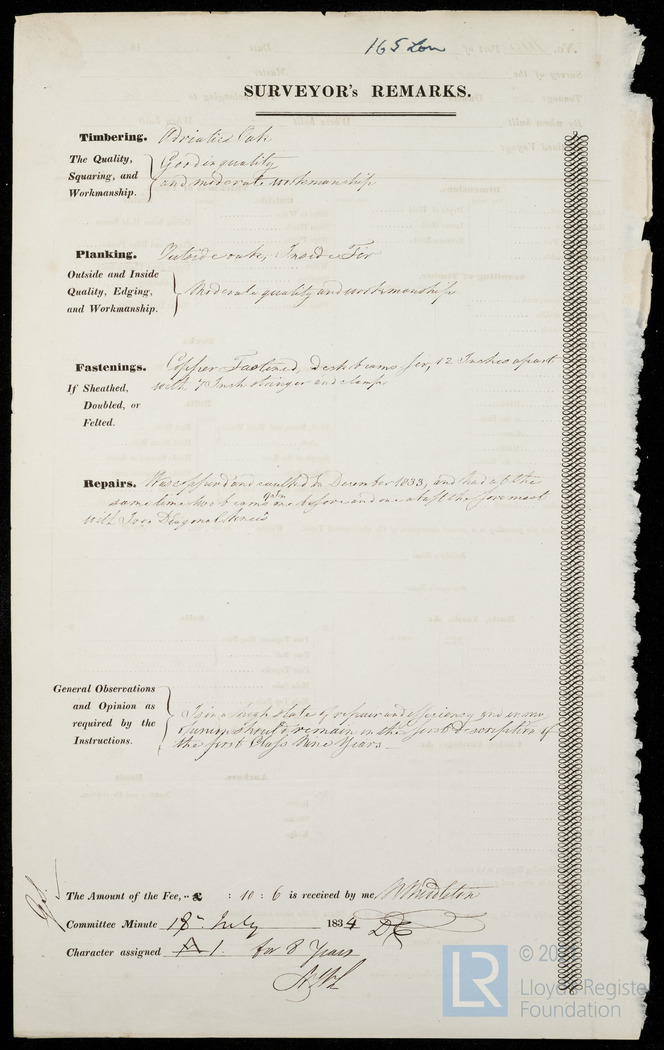 165 Lon
SURVEYOR's REMARKS.
Timbering. Adriatic Oak
The Quality, Squaring, and Workmanship.
Good in quality
and moderate workmanship
Planking. Outside oak, Inside Fir
Outside and Inside Quality, Edging, and Workmanship.
Moderate quality and workmanship
Fastenings. Copper Fastened, deck beams fir, 12 Inches apart
If Sheathed, Doubled, or Felted.
with Inch stringer and clamp
Repairs. Was coppered and caulked in December 1833, and had at the
same time two beams one before and one abaft the foremast
with Iron Diagonal knees
General Observations and Opinion as required by the Instructions.
Is in a high state of repair and efficiency and in my
opinion should remain in the first description of
the first Class Nine Years
The Amount of the Fee, - - £ : 10 : 6 is received by me, Middleton
Committee Minute 18th July 1834
Character assigned A 1. for 8 Years
LR
© 20
Lloyd's Registe
Foundation